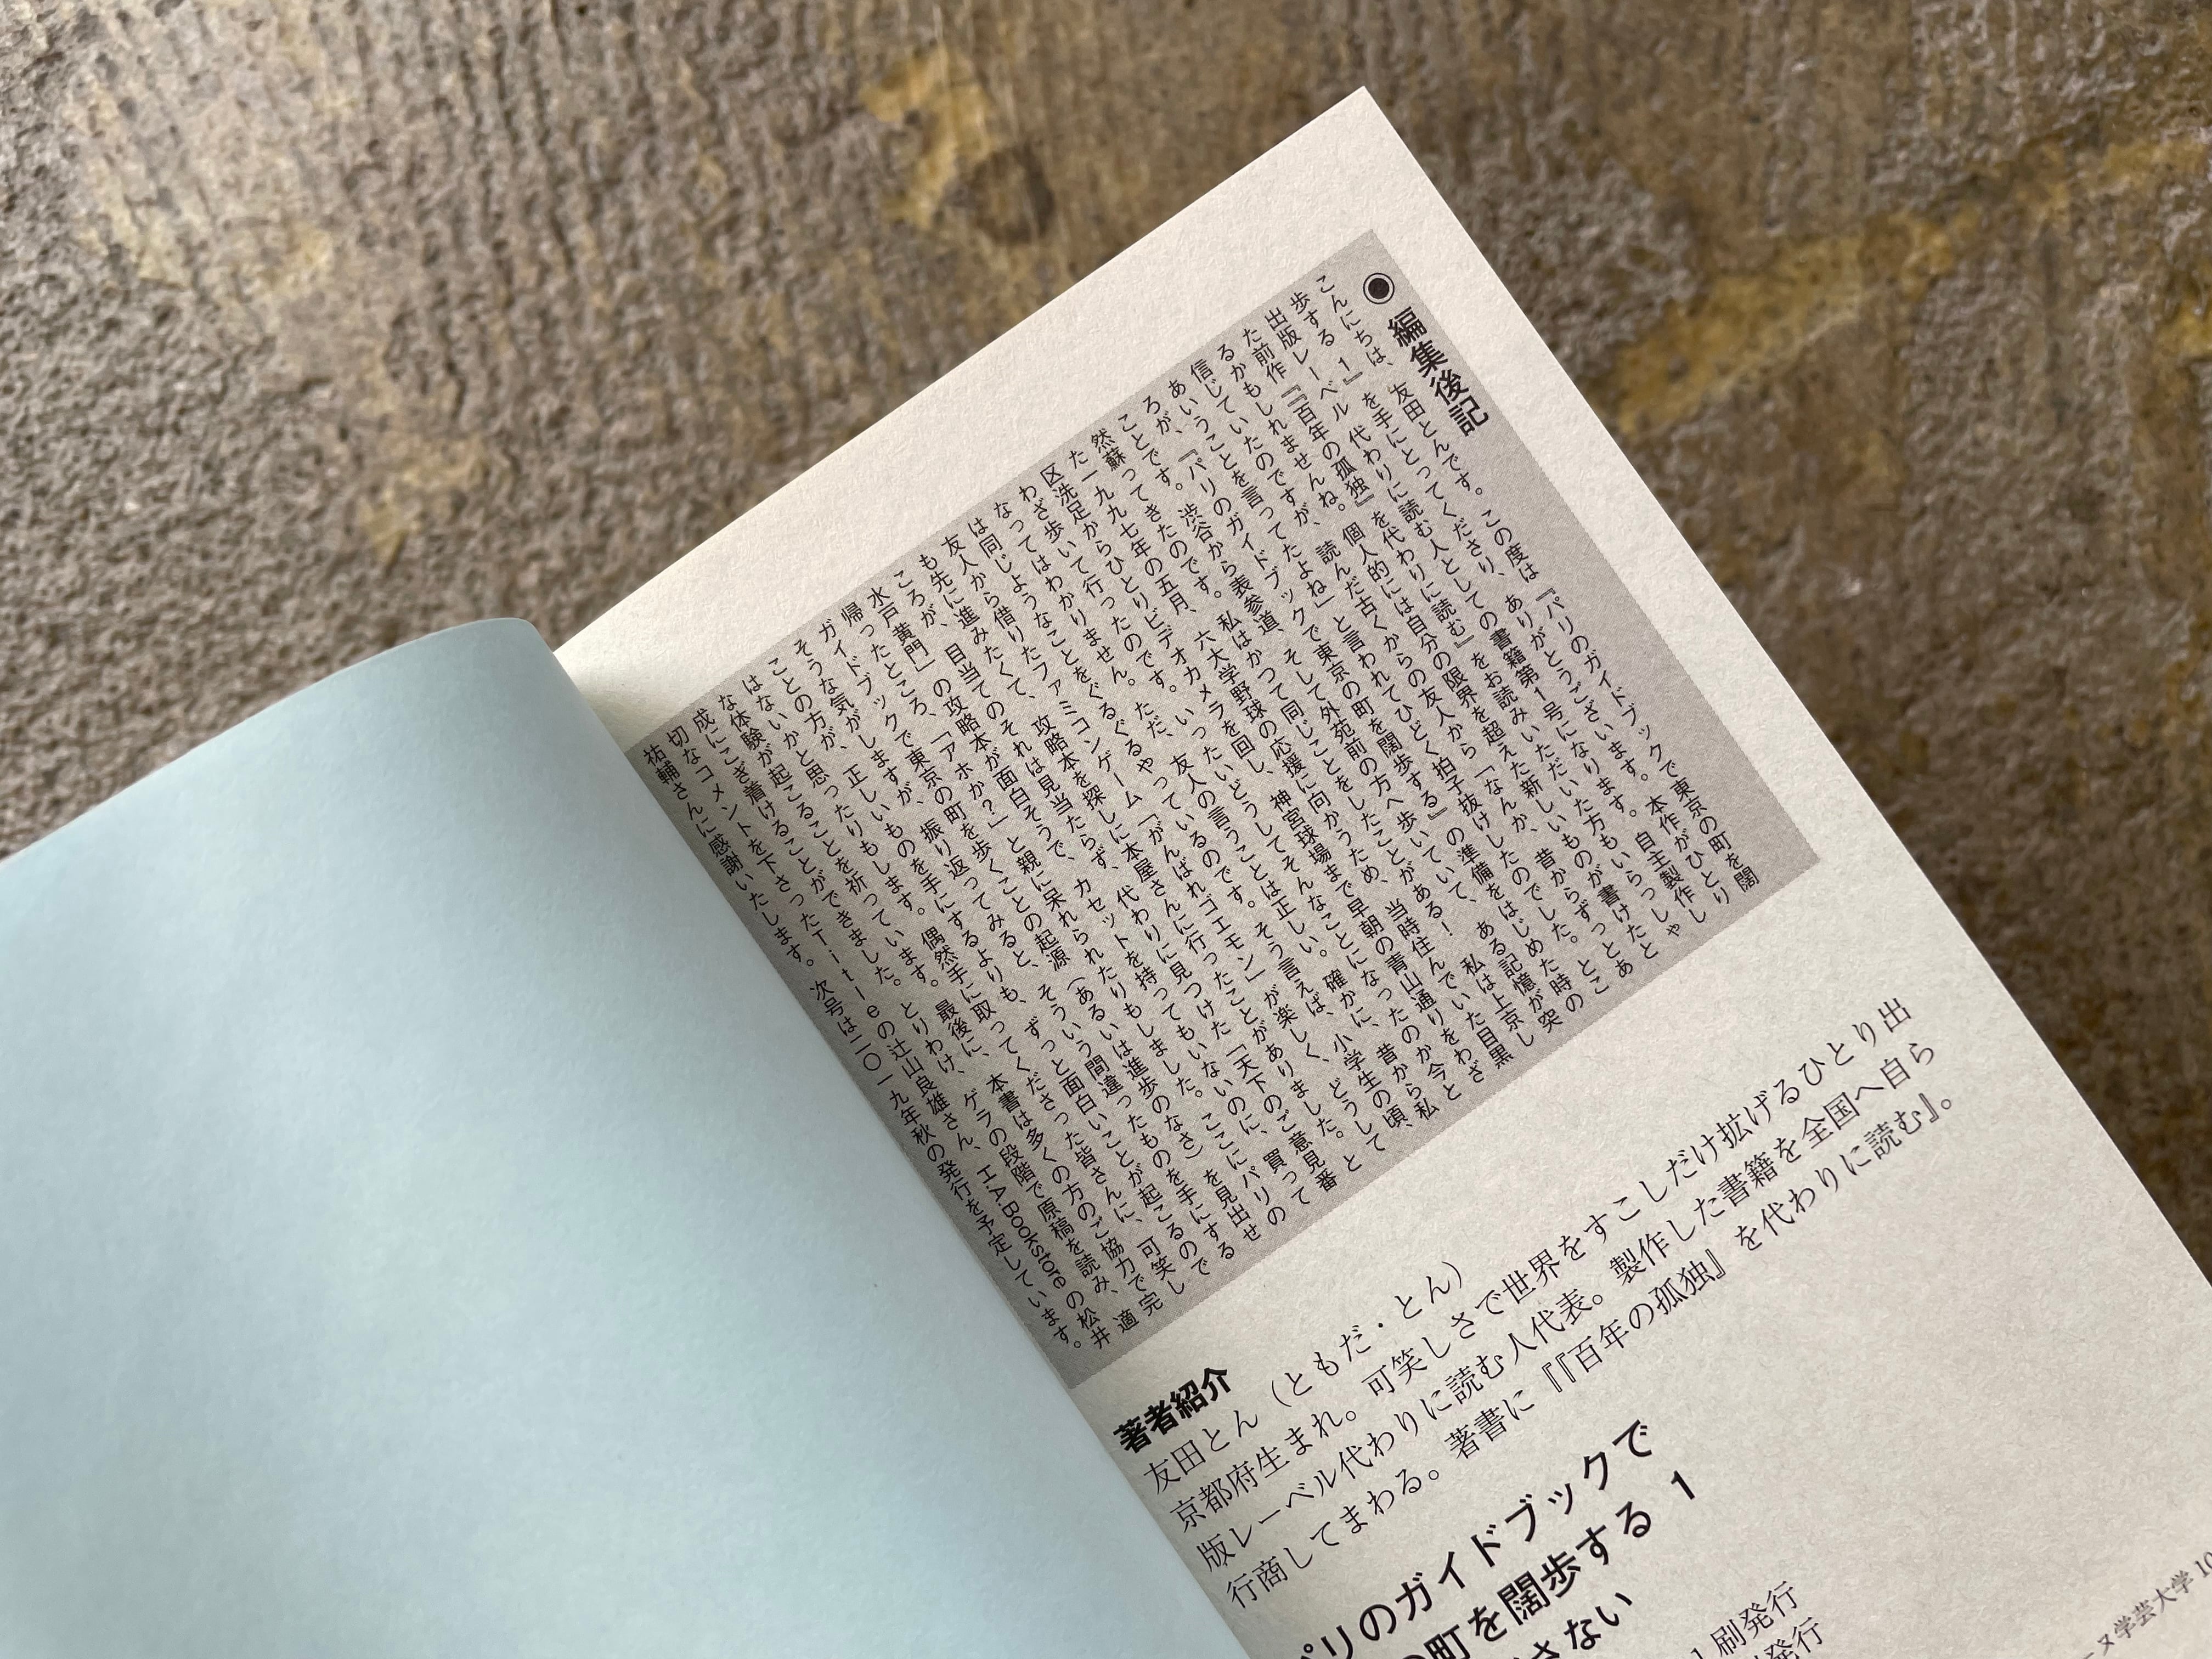 ◉編集後記
こんにちは、友田とんです。この度は『パリのガイドブックで東京の町を闊
歩する 1』を手にとってくださり、ありがとうございます。本作がひとり
出版レーベル 代わりに読む人としての書籍第1号になります。自主製作し
た前作『『百年の孤独』を代わりに読む』をお読みいただいた方もいらっしゃ
るかもしれませんね。個人的には自分の限界を超えた新しいものが書けたと
信じていたのですが、読んだ古くからの友人から「なんか、昔からずっとあ
あいうことを言ってたよね」と言われてひどく拍子抜けしたのでした。とこ
ろが、『パリのガイドブックで東京の町を闊歩する』の準備をはじめた時の
ことです。渋谷から表参道、そして外苑前の方へ歩いていて、ある記憶が突
然蘇ってきたのです。私はかつて同じことをしたことがある! 私は上京し
た一九九七年の五月、六大学野球の応援に向かうため、当時住んでいた目黒
区洗足からひとりビデオカメラを回し、神宮球場まで早朝の青山通りをわざ
わざ歩いて行ったのです。いったいどうしてそんなことになったのか今と
なってはわかりません。ただ、友人の言うことは正しい。確かに、昔から私
は同じようなことをぐるぐるやっているのです。そう言えば、小学生の頃、
友人から借りたファミコンゲーム「がんばれゴエモン」が楽しく、どうして
も先に進みたくて、攻略本を探しに本屋さんに行ったことがありました。と
ころが、目当てのそれは見当たらず、代わりに見つけた「天下のご意見番
水戸黄門」の攻略本が面白そうで、カセットを持ってもいないのに、買って
帰ったところ、「アホか?」と親に呆れられたりもしました。ここにパリの
ガイドブックで東京の町を歩くことの起源（あるいは進歩のなさ）を見出せ
そうな気がしますが、振り返ってみると、そういう間違ったものを手にする
ことの方が、正しいものを手にするよりも、ずっと面白いことが起こるので
はないかと思ったりもします。偶然手に取ってくださった皆さんに、可笑し
な体験が起こることを祈っています。最後に、本書は多くの方のご協力で完
成にこぎ着けることができました。とりわけ、ゲラの段階で原稿を読み、適
切なコメントを下さったTitleの辻山良雄さん、H.A.Bookstoreの松井
祐輔さんに感謝いたします。次号は二〇一九年秋の発行を予定しています。
著者紹介
友田とん（ともだ・とん）
京都府生まれ。可笑しさで世界をすこしだけ拡げるひとり出
版レーベル代わりに読む人代表。製作した書籍を全国へ自ら
行商してまわる。著書に『『百年の孤独』を代わりに読む』。
パリのガイドブックで
の町を闊歩する 1
さない
刷発行
発行
ヌ学芸大学 10